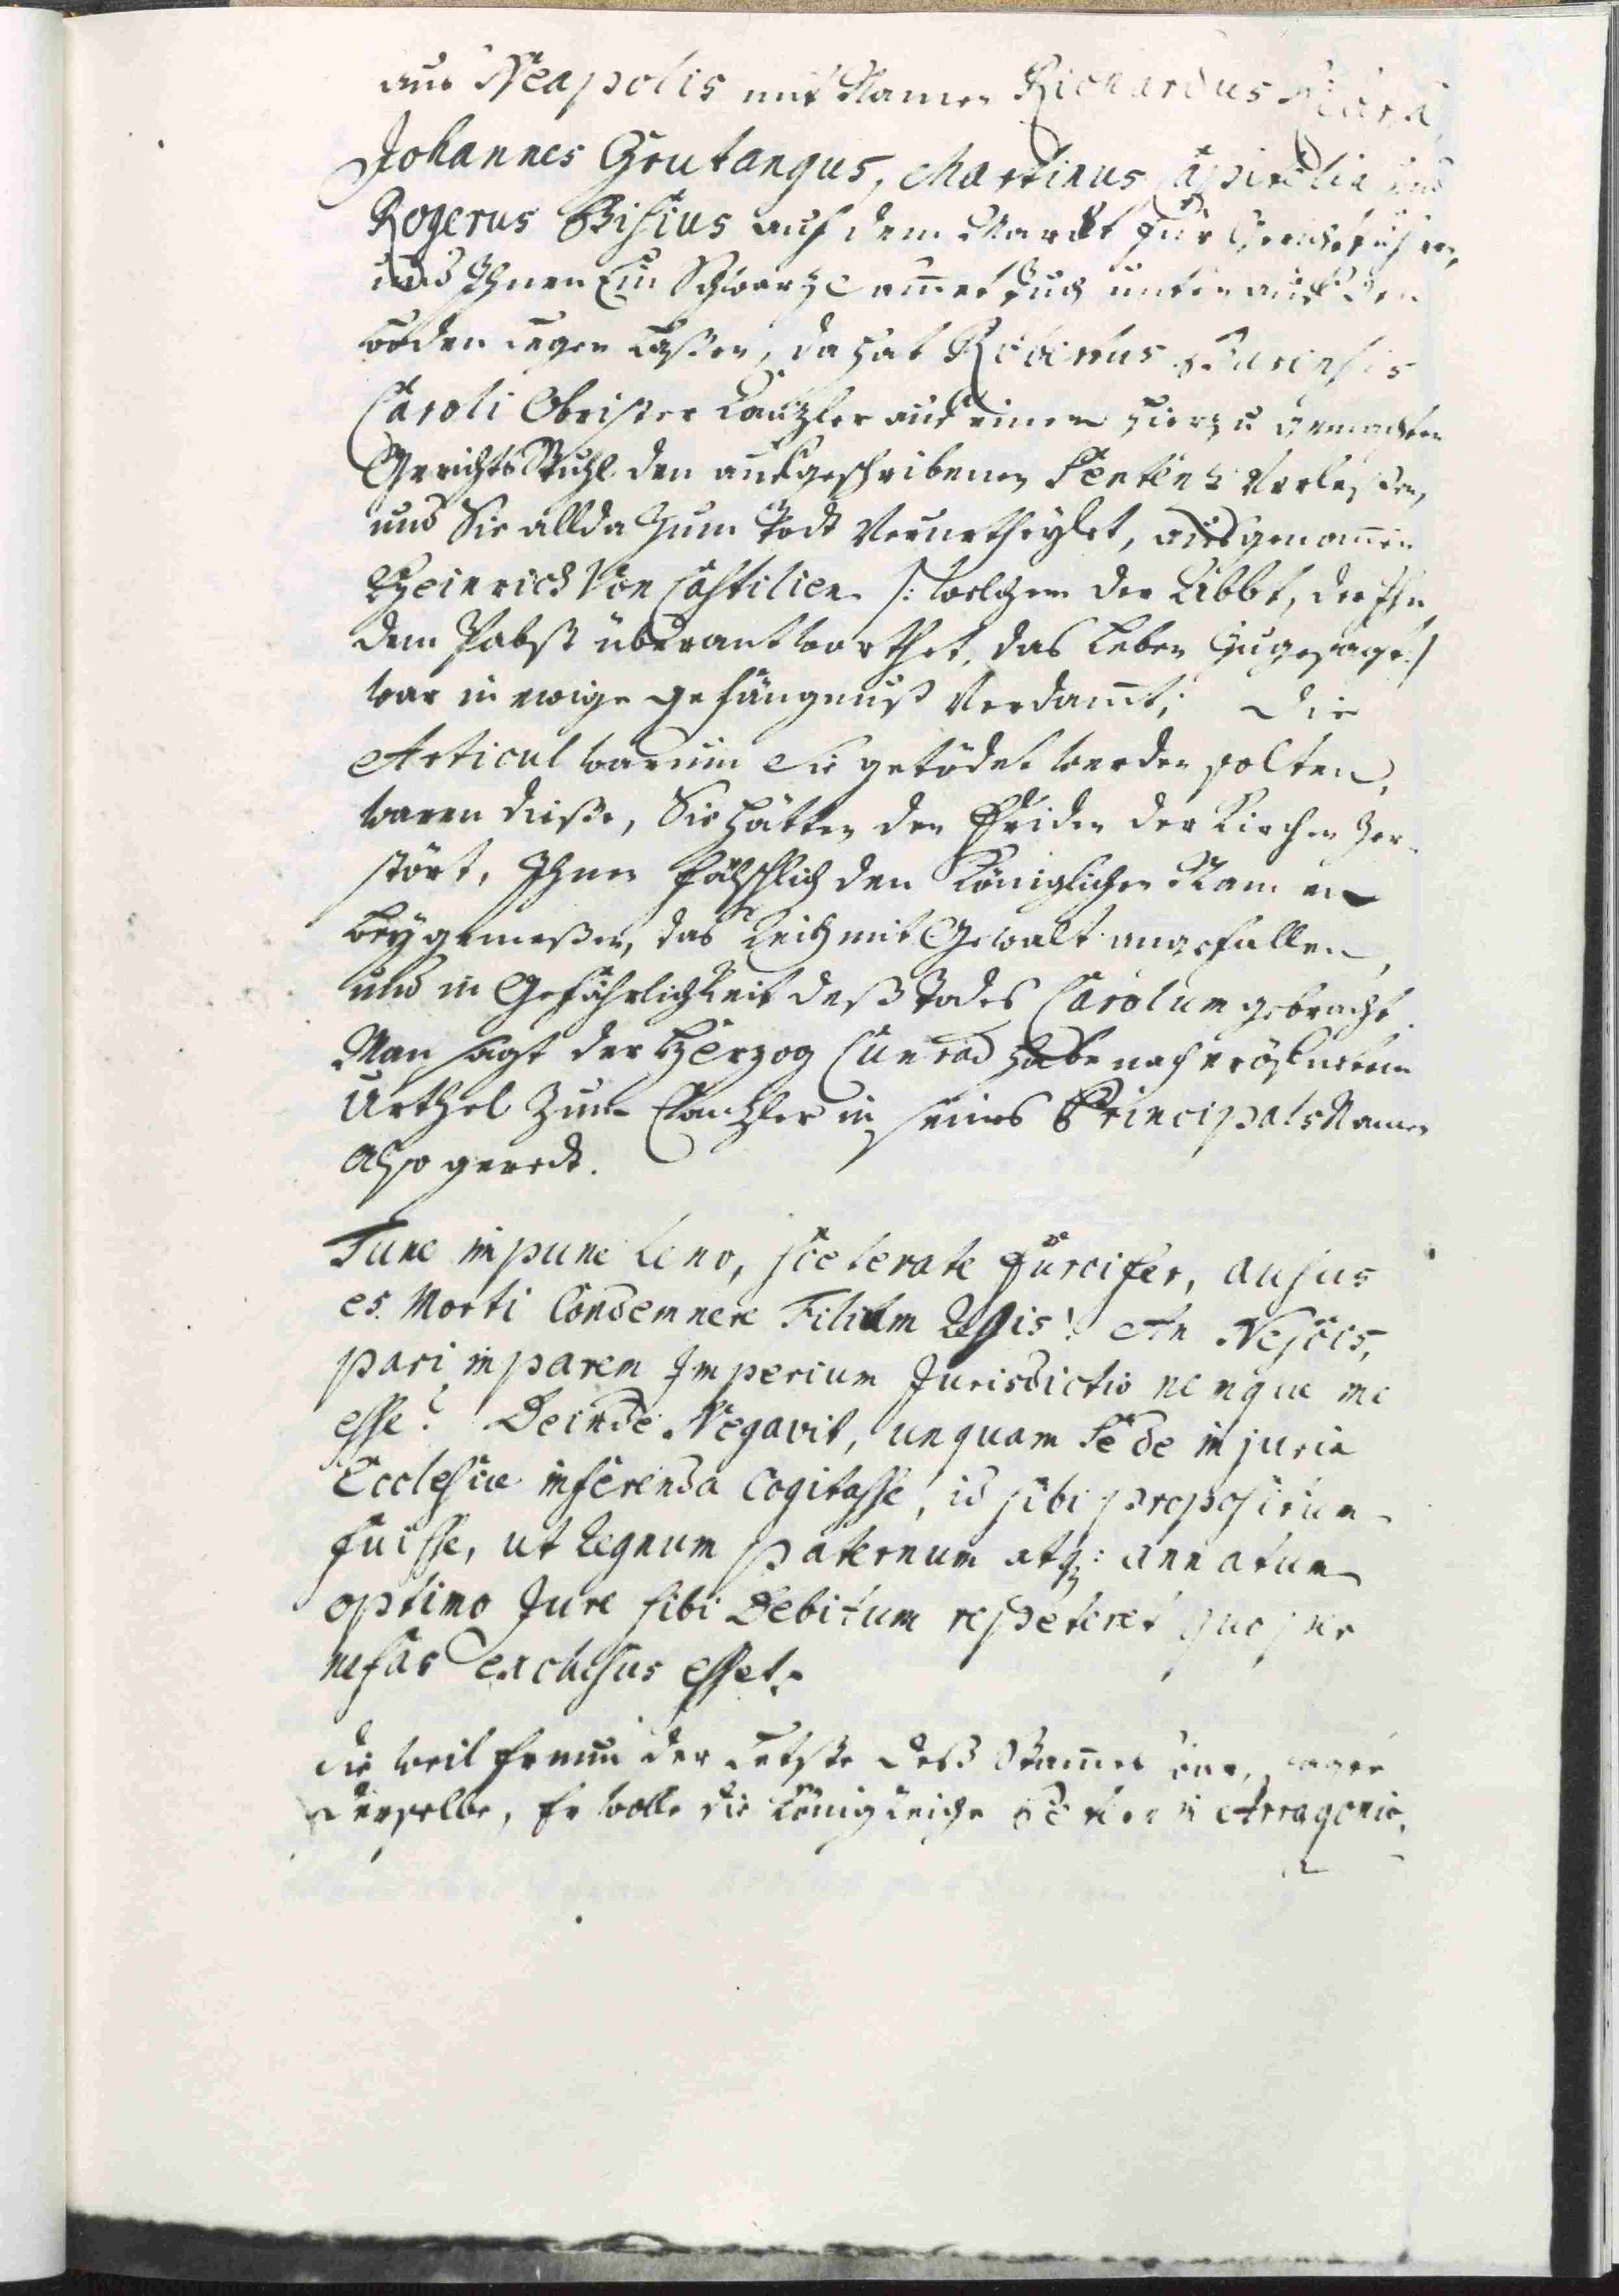 aus Neapolis mit Namen Richardus
Johannes Grutangus, Martinus und
Rogerus Bisius auf dem Markt für Gericht führen,
und Ihnen Ein Schwartz Sam̄et Tuch unten auf den
boden legen laßen, da hat Robertus Bariensis
Caroli Obrister Cantzler auf einem hierzu gemachten
Gerichts Stuhl den aufgeschribenen Sententz Verleßen,
und Sie allda Zum Todt Verurtheylet, ausgenom̄en
Heinrich Von Castilien /: welchem der Abbt, der Ihn
dem Pabst überantworthet, das Leben Zugesagt :/
war in ewige gefängnuß Verdam̄t; Die
Articul warum Sie getödet werden solten,
waren dieße, Sie hätten den Friden der Kirchen Zer-
stört, Ihnen fälschlich den Königlichen Namen
beygemeßen, das Reich mit Gewalt angefallen,
und in Gefährlichkeit deß Todes Carolum gebracht.
Man sagt der Herzog Cunrad habe nach eröfnetem
Urthel Zum Cantzler in seines Principals Namen
Also geredt.
Tune impune leno, scelerate furcifer, ausus
es Morti Condemnere Filium Regis! An Nescis,
pari in parem Imperium Jurisdictio nemque ne
esse? Deinde Negavit, unquam Se de injuria
Ecclesiæ inferenda Cogitasse, id sibi propositum
fuisse, ut Regnum paternum atq: annatum
optimo Jure sibi Debitum repeteret quo per
nefas exclusus esset.
die weil Er nun der Letste deß Stam̄es war, sagte
derselbe, Er wolle die Königreiche Arragonie,